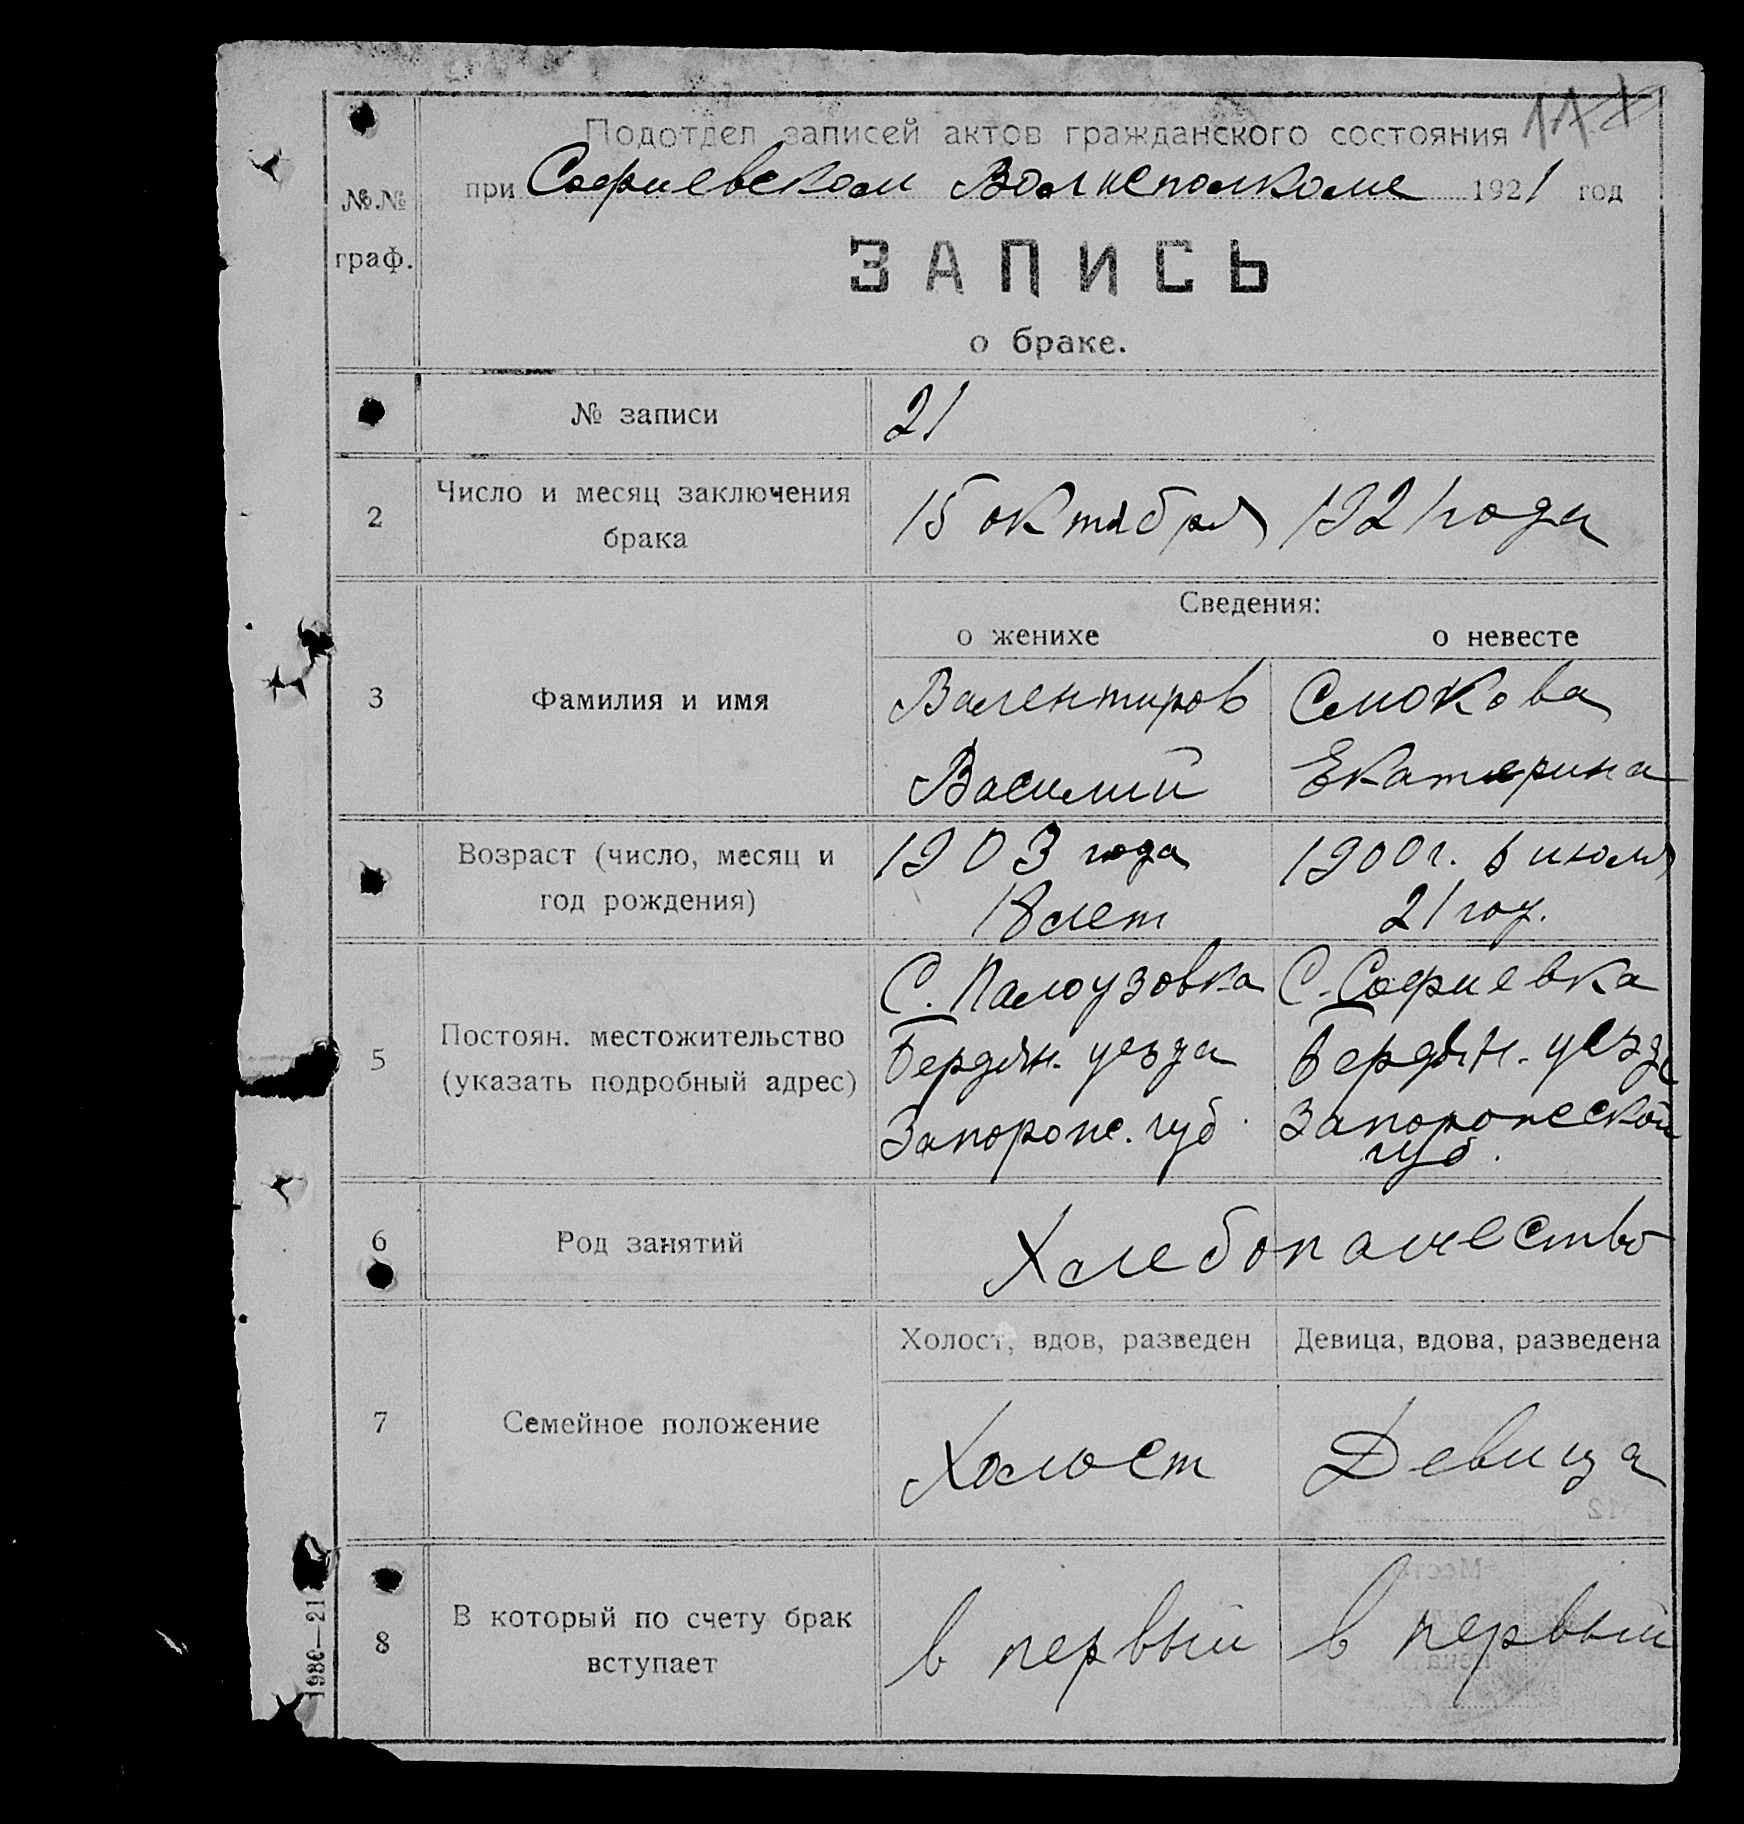 Подотдел записей актов гражданского состояния
при Софиевском Волисполкоме 1921 год
№№
граф.
ЗАПИСЬ
о браке.
№ записи 21
2 Число и месяц заключения брака 15 октября 1921 года
Сведения:
о женихе о невесте
3 Фамилия и имя
Валентиров Смокова
Василий Екатерина
Возраст (число, месяц и 1903 года 1900 г. 6 июля
год рождения) 18 лет 21 год.
С. Палоузовка С. Софиевка
5 Постоян. местожительство Бердян. уезда Бердян. уезда
(указать подробный адрес) Запорож. губ. Запорожской
губ.
6 Род занятий Хлебопашество
Холост, вдов, разведен Девица, вдова, разведена
7 Семейное положение Холост Девица
8 В который по счету брак в первый в первый
вступает